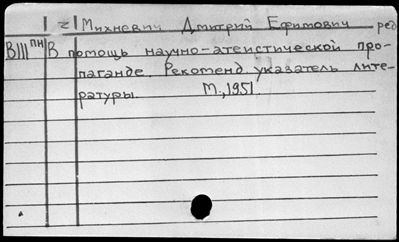 Михневич Дмитрий Ефимович ред
ВIII ПН В помощь научно-атеистической про-
паганде. Рекоменд. указатель лите-
ратуры. М., 1951.